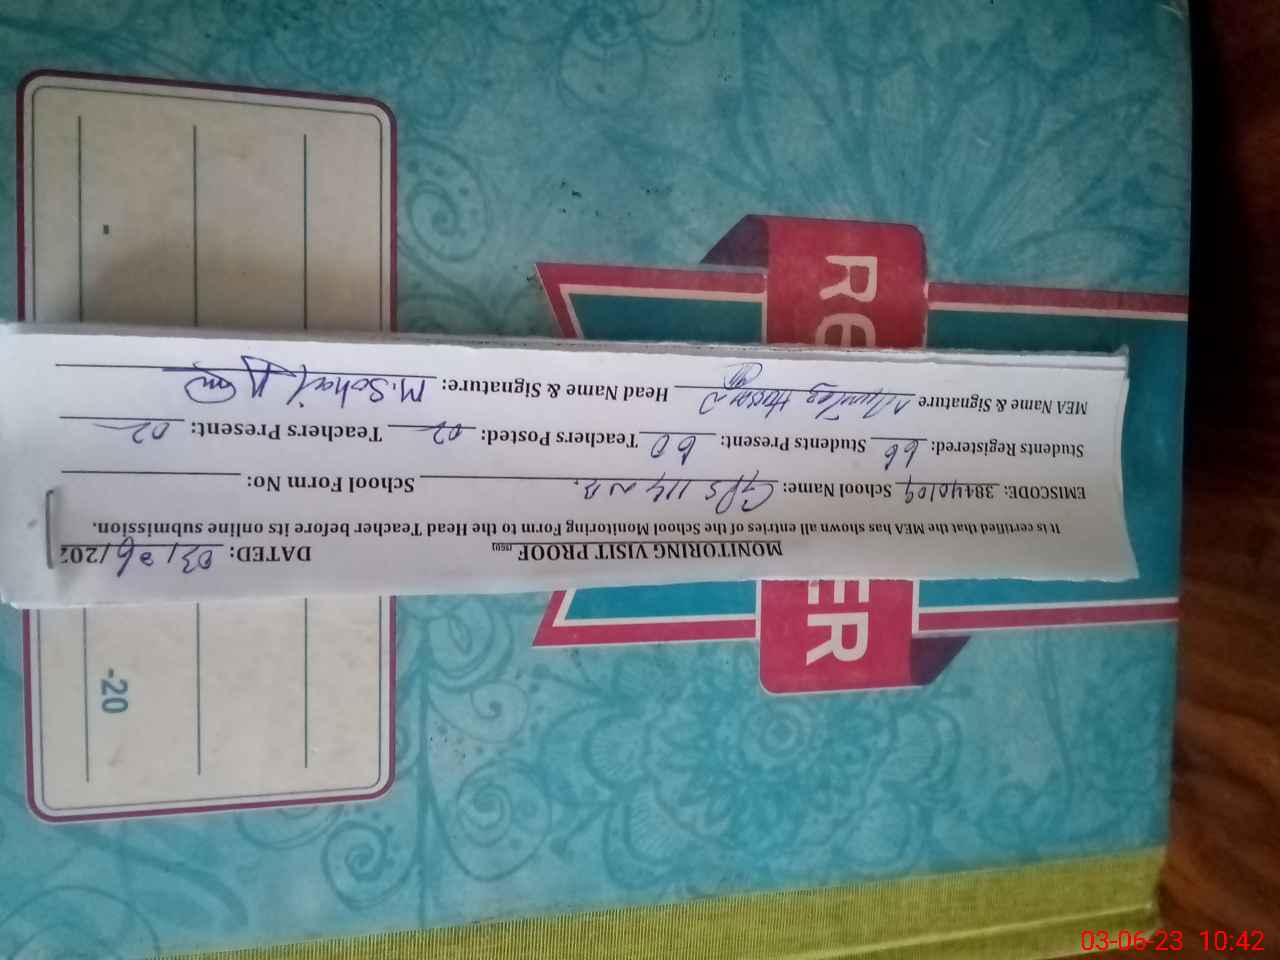 MONITORING VISIT PROOF DATED: 03/06/202
It is certified that the MEA has shown all entries of the School Monitoring Form to the Head Teacher before its online submission.
EMISCODE: 38440109 School Name: GPS 114 NB. School Form No:
Students Registered: 66 Students Present: 60 Teachers Posted: 02 Teachers Present: 02
MEA Name & Signature Hassan Head Name & Signature: M. Sohail
RE
ER
-20
03-06-23 10:42